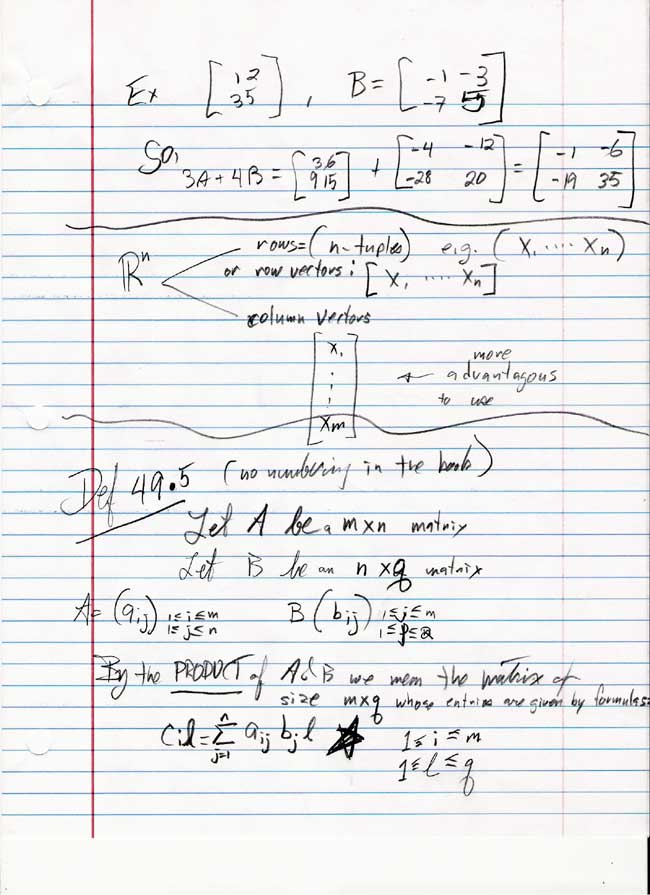 Ex [1 2 , B = [-1 -3
3 5] -7 5]
So, 3A + 4B = [3 6 + [-4 -12 = [-1 -6
9 15] -28 20] -19 35]
ℝⁿ
rows = (n-tuples) e.g. (X₁ ..... Xₙ)
or row vectors : [X₁ ..... Xₙ]
column vectors
[X₁
⋮
Xm]
← more
advantagous
to use
Def 49.5 (no numbering in the book)
Let A be a m×n matrix
Let B be an n×q matrix
A = (aij) 1≤i≤m B (bij) 1≤j≤m
1≤j≤n
By the PRODUCT of A & B we mean the matrix of
size m×q whose entries are given by formulas:
Cil = Σ aij bjl ★ 1≤i≤m
n
j=1
1≤l≤q